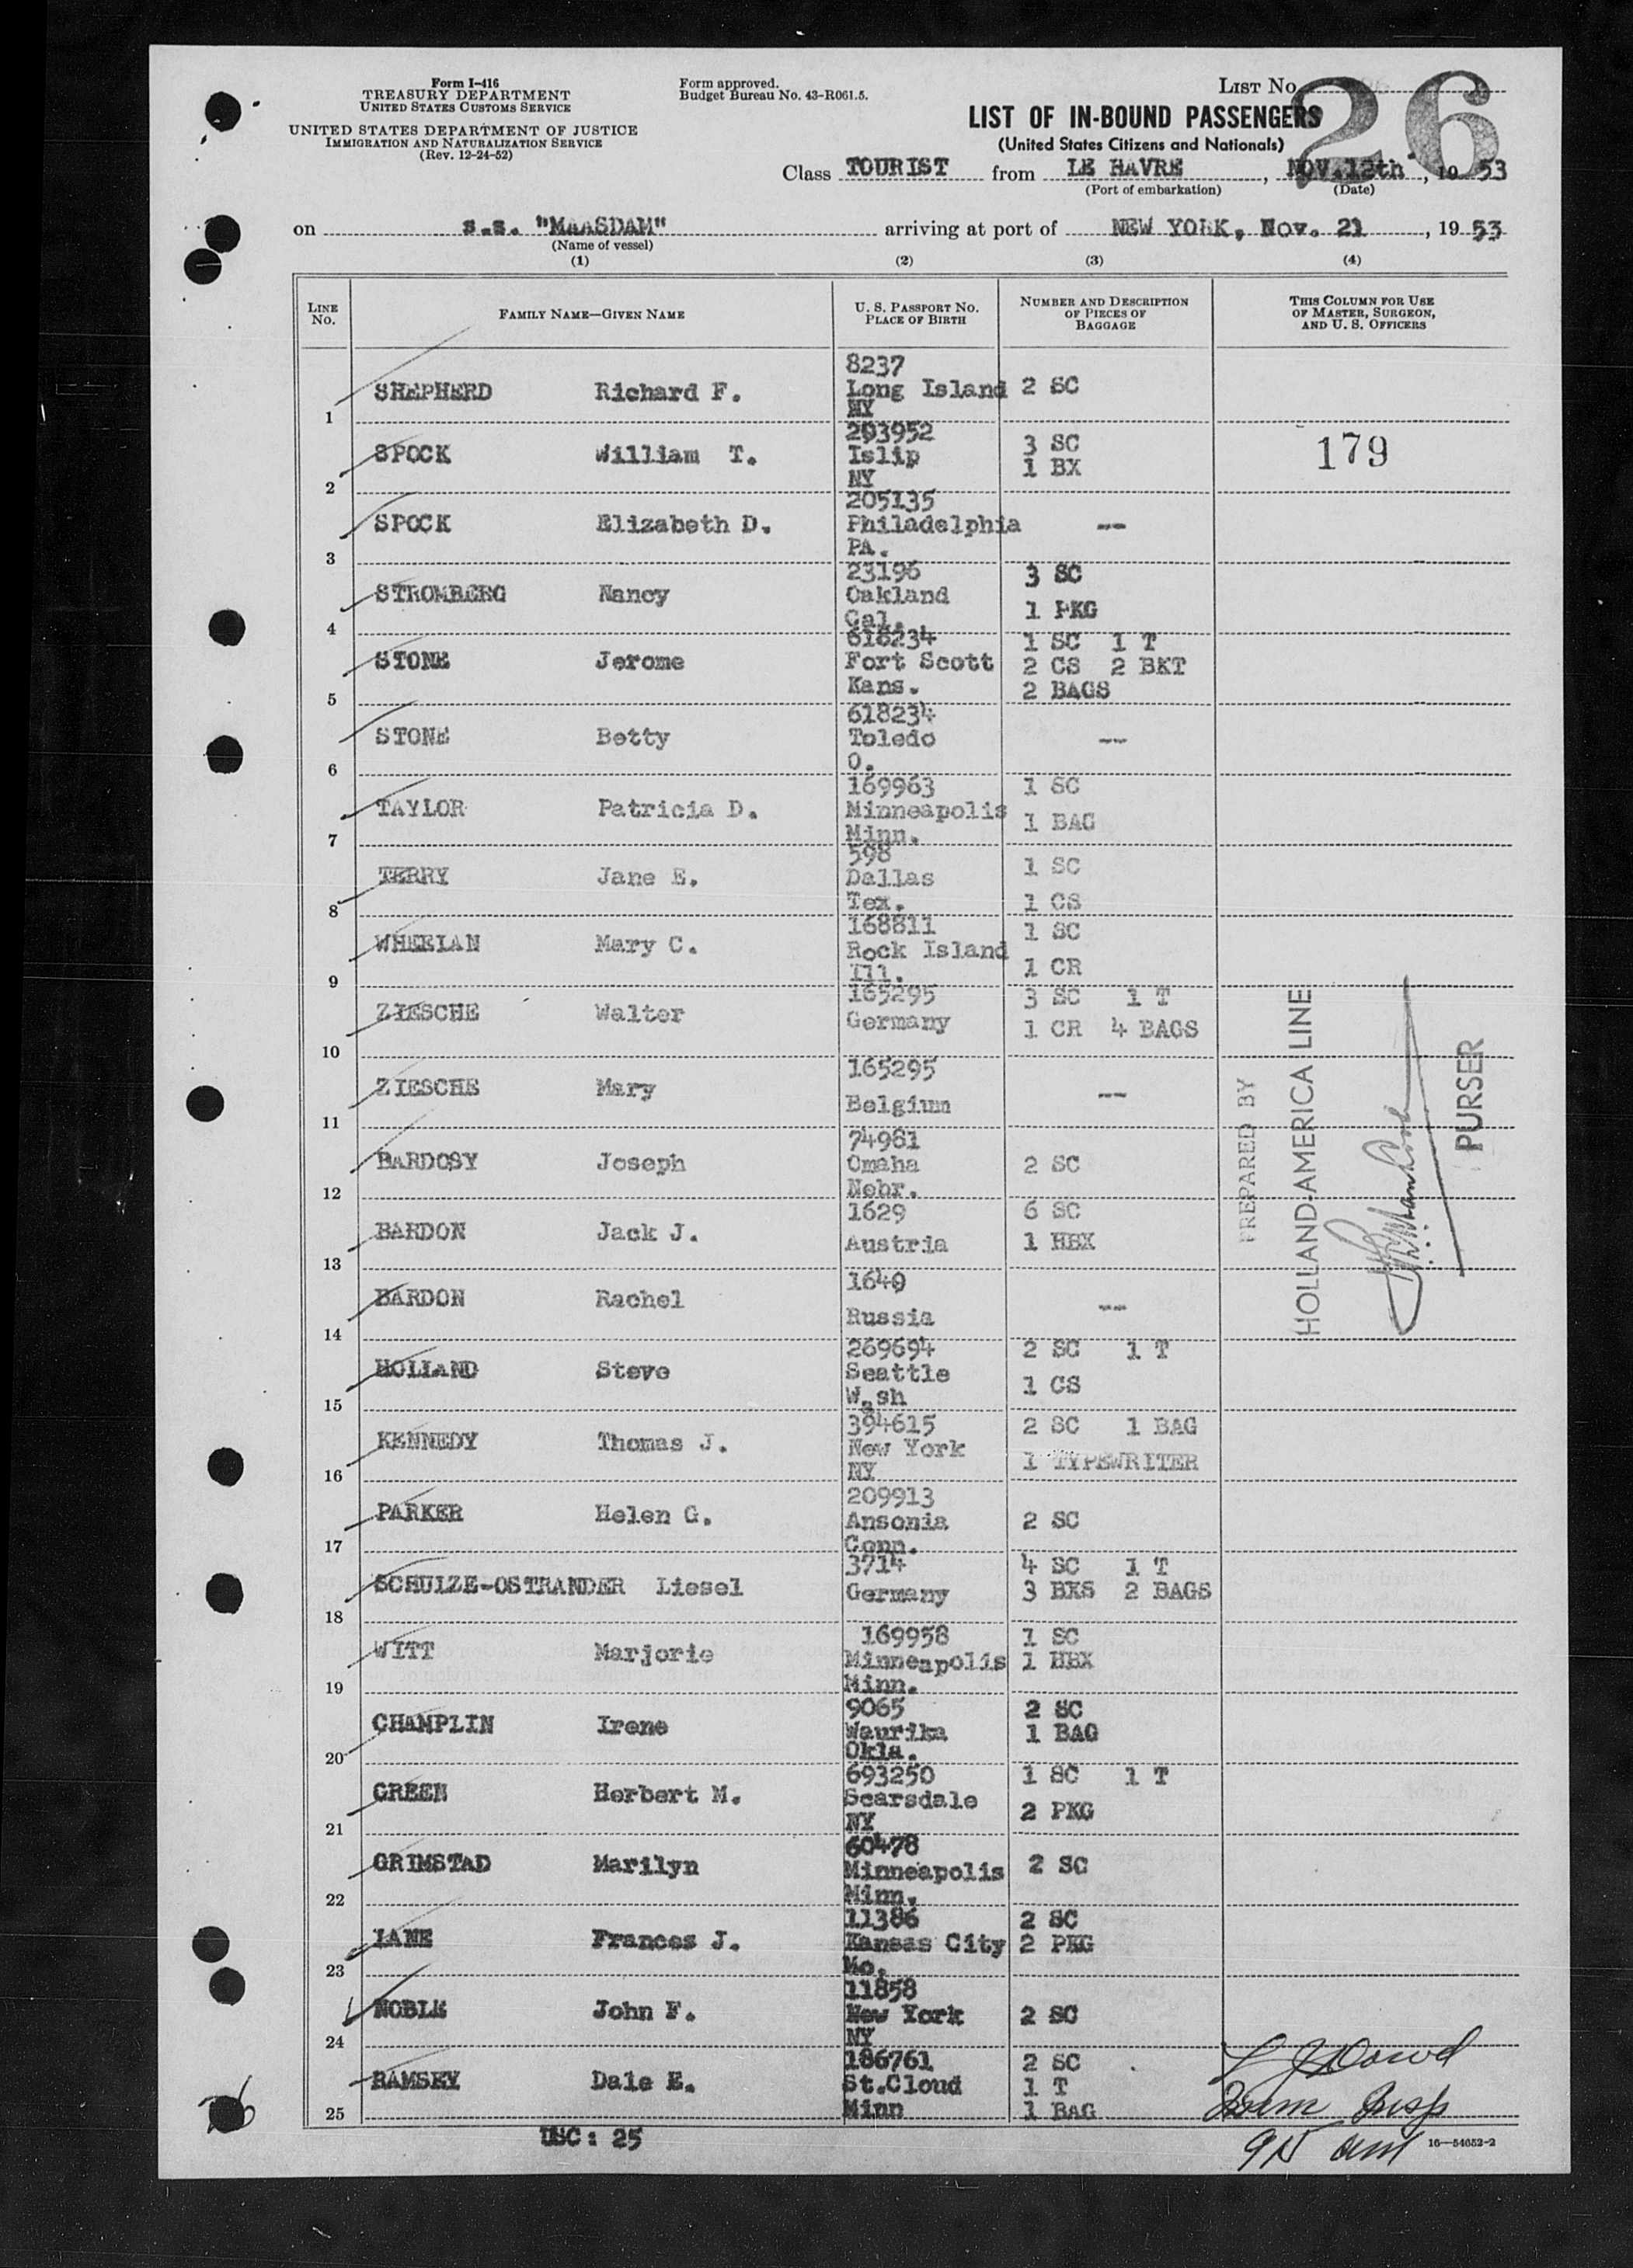 Form I-416
TREASURY DEPARTMENT
UNITED STATES CUSTOMS SERVICE
UNITED STATES DEPARTMENT OF JUSTICE
IMMIGRATION AND NATURALIZATION SERVICE
(Rev. 12-24-52)
Form approved.
Budget Bureau No. 43-R061.5.
LIST No. 26
LIST OF IN-BOUND PASSENGERS
(United States Citizens and Nationals)
Class TOURIST from LE HAVRE, NOV.12th, 1953
(Port of embarkation) (Date)
on s.s. "MAASDAM" arriving at port of NEW YORK, Nov. 21, 1953
(Name of vessel)
(1) (2) (3) (4)
LINE No. FAMILY NAME—GIVEN NAME U. S. PASSPORT No. PLACE OF BIRTH NUMBER AND DESCRIPTION OF PIECES OF BAGGAGE THIS COLUMN FOR USE OF MASTER, SURGEON, AND U. S. OFFICERS
8237
1 SHEPHERD Richard F. Long Island 2 SC
NY
293952
2 SPOCK William T. Islip 3 SC 179
NY 1 BX
205135
3 SPOCK Elizabeth D. Philadelphia --
PA.
23196 3 SC
4 STROMBERG Nancy Oakland
Cal. 1 PKG
618234 1 SC 1 T
5 STONE Jerome Fort Scott 2 CS 2 BKT
Kans. 2 BAGS
618234
6 STONE Betty Toledo --
O.
169963 1 SC
7 TAYLOR Patricia D. Minneapolis 1 BAG
Minn.
598 1 SC
8 TERRY Jane E. Dallas
Tex. 1 CS
168811 1 SC
9 WHEELAN Mary C. Rock Island
Ill. 1 CR
165295 3 SC 1 T
10 ZIESCHE Walter Germany 1 CR 4 BAGS
165295
11 ZIESCHE Mary Belgium --
74981
12 BARDOSY Joseph Omaha 2 SC
Nebr.
1629 6 SC
13 BARDON Jack J. Austria 1 HBX
1640
14 BARDON Rachel Russia --
269694 2 SC 1 T
15 HOLLAND Steve Seattle 1 CS
Wash
394615 2 SC 1 BAG
16 KENNEDY Thomas J. New York 1 TYPEWRITER
NY
209913
17 PARKER Helen G. Ansonia 2 SC
Conn.
3714 4 SC 1 T
18 SCHULZE-OSTRANDER Liesel Germany 3 BKS 2 BAGS
169958 1 SC
19 WITT Marjorie Minneapolis 1 HBX
Minn.
9065 2 SC
20 CHAMPLIN Irene Waurika 1 BAG
Okla.
693250 1 SC 1 T
21 GREEN Herbert M. Scarsdale 2 PKG
NY
60478
22 GRIMSTAD Marilyn Minneapolis 2 SC
Minn.
11386 2 SC
23 LANE Frances J. Kansas City 2 PKG
Mo.
11858
24 NOBLE John F. New York 2 SC
NY
186761 2 SC
25 RAMSEY Dale E. St.Cloud 1 T
Minn 1 BAG
PREPARED BY
HOLLAND-AMERICA LINE
PURSER
USC: 25
Imm Insp
26
16—54652-2